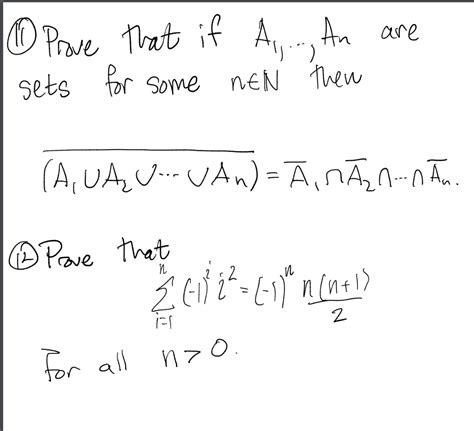 ⑪ Prove that if A₁,...,Aₙ are
sets for some n∈ℕ then
(A₁∪A₂∪⋯∪Aₙ)̅ = A̅₁∩A̅₂∩⋯∩A̅ₙ.
⑫ Prove that
∑ᵢ₌₁ⁿ (-1)ⁱ i² = (-1)ⁿ n(n+1)/2
For all n>0.